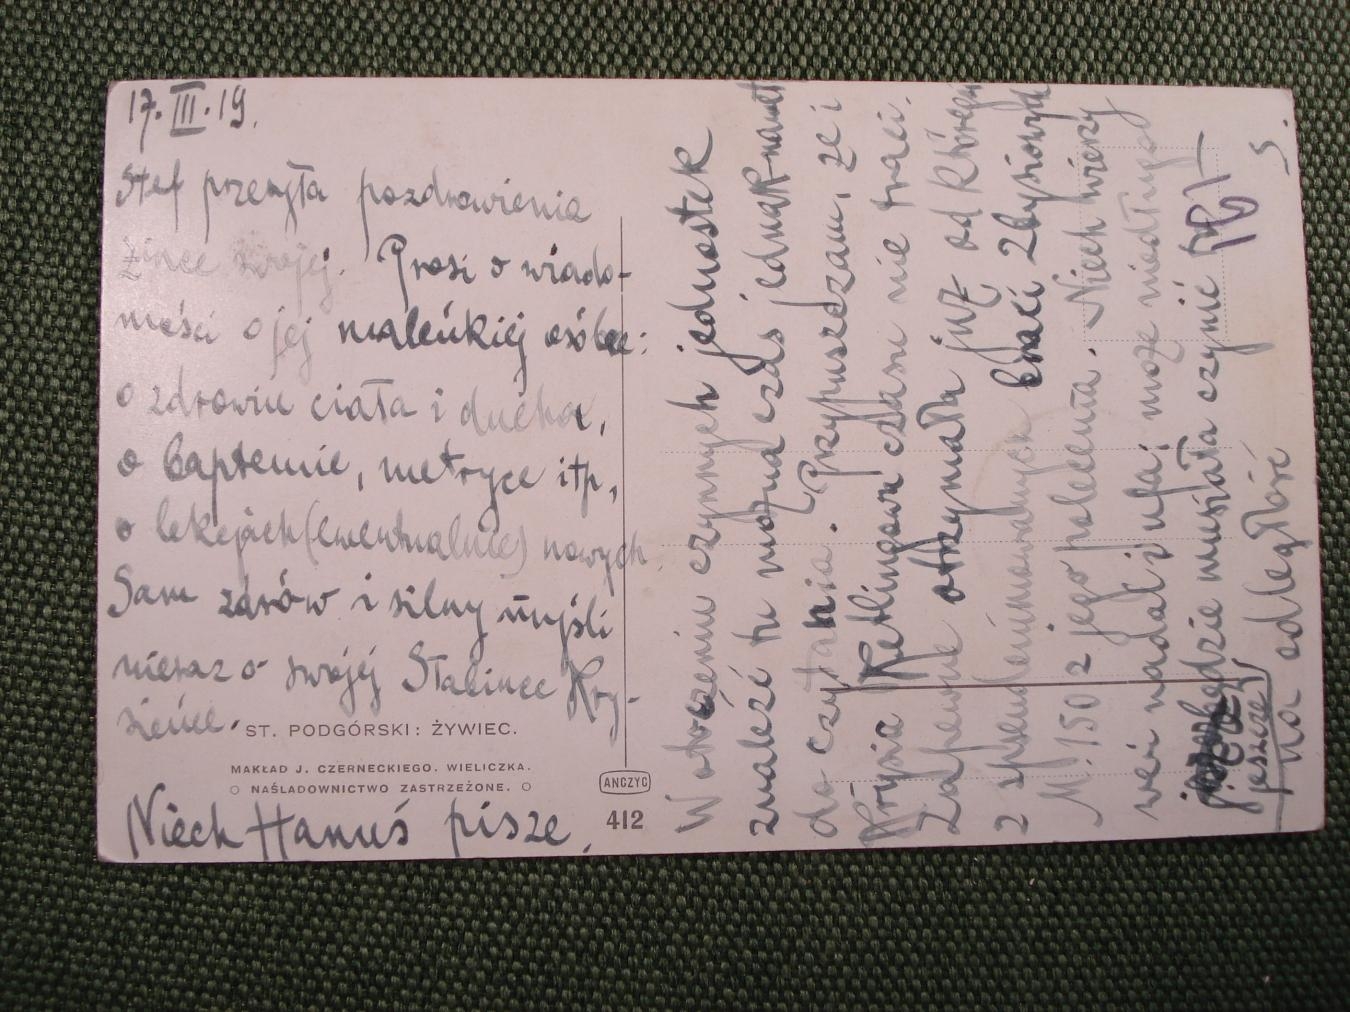 17.III.19.
Stef przesyła pozdrowienia
Żince swojej. Prosi o wiado-
mości o jej maleńkiej osóbce:
o zdrowiu ciała i ducha,
o baptemie, metryce itp,
o lekcjach (ewentualnie) nowych.
Sam zdrów i silny myśli
nieraz o swojej Stalince Kry-
sieńce.
ST. PODGÓRSKI: ŻYWIEC.
NAKŁAD J. CZERNECKIEGO. WIELICZKA.
NAŚLADOWNICTWO ZASTRZEŻONE.
ANCZYC
412
Niech Hanuś pisze.
W otoczeniu czynnych jednostek
znaleźć tu można czas jednak nawet
do czytania. Przypuszczam, że i
Krysia Ketlingowa czasu nie traci.
Zapewne otrzymała już od którego
z zdemobilizowanych braci Zbysiowych
M. 150 z jego polecenia. Niech wierzy
wei nadal i ufa; może niedługo
będzie musiała czynić to
jeszcze
na odległość
S.